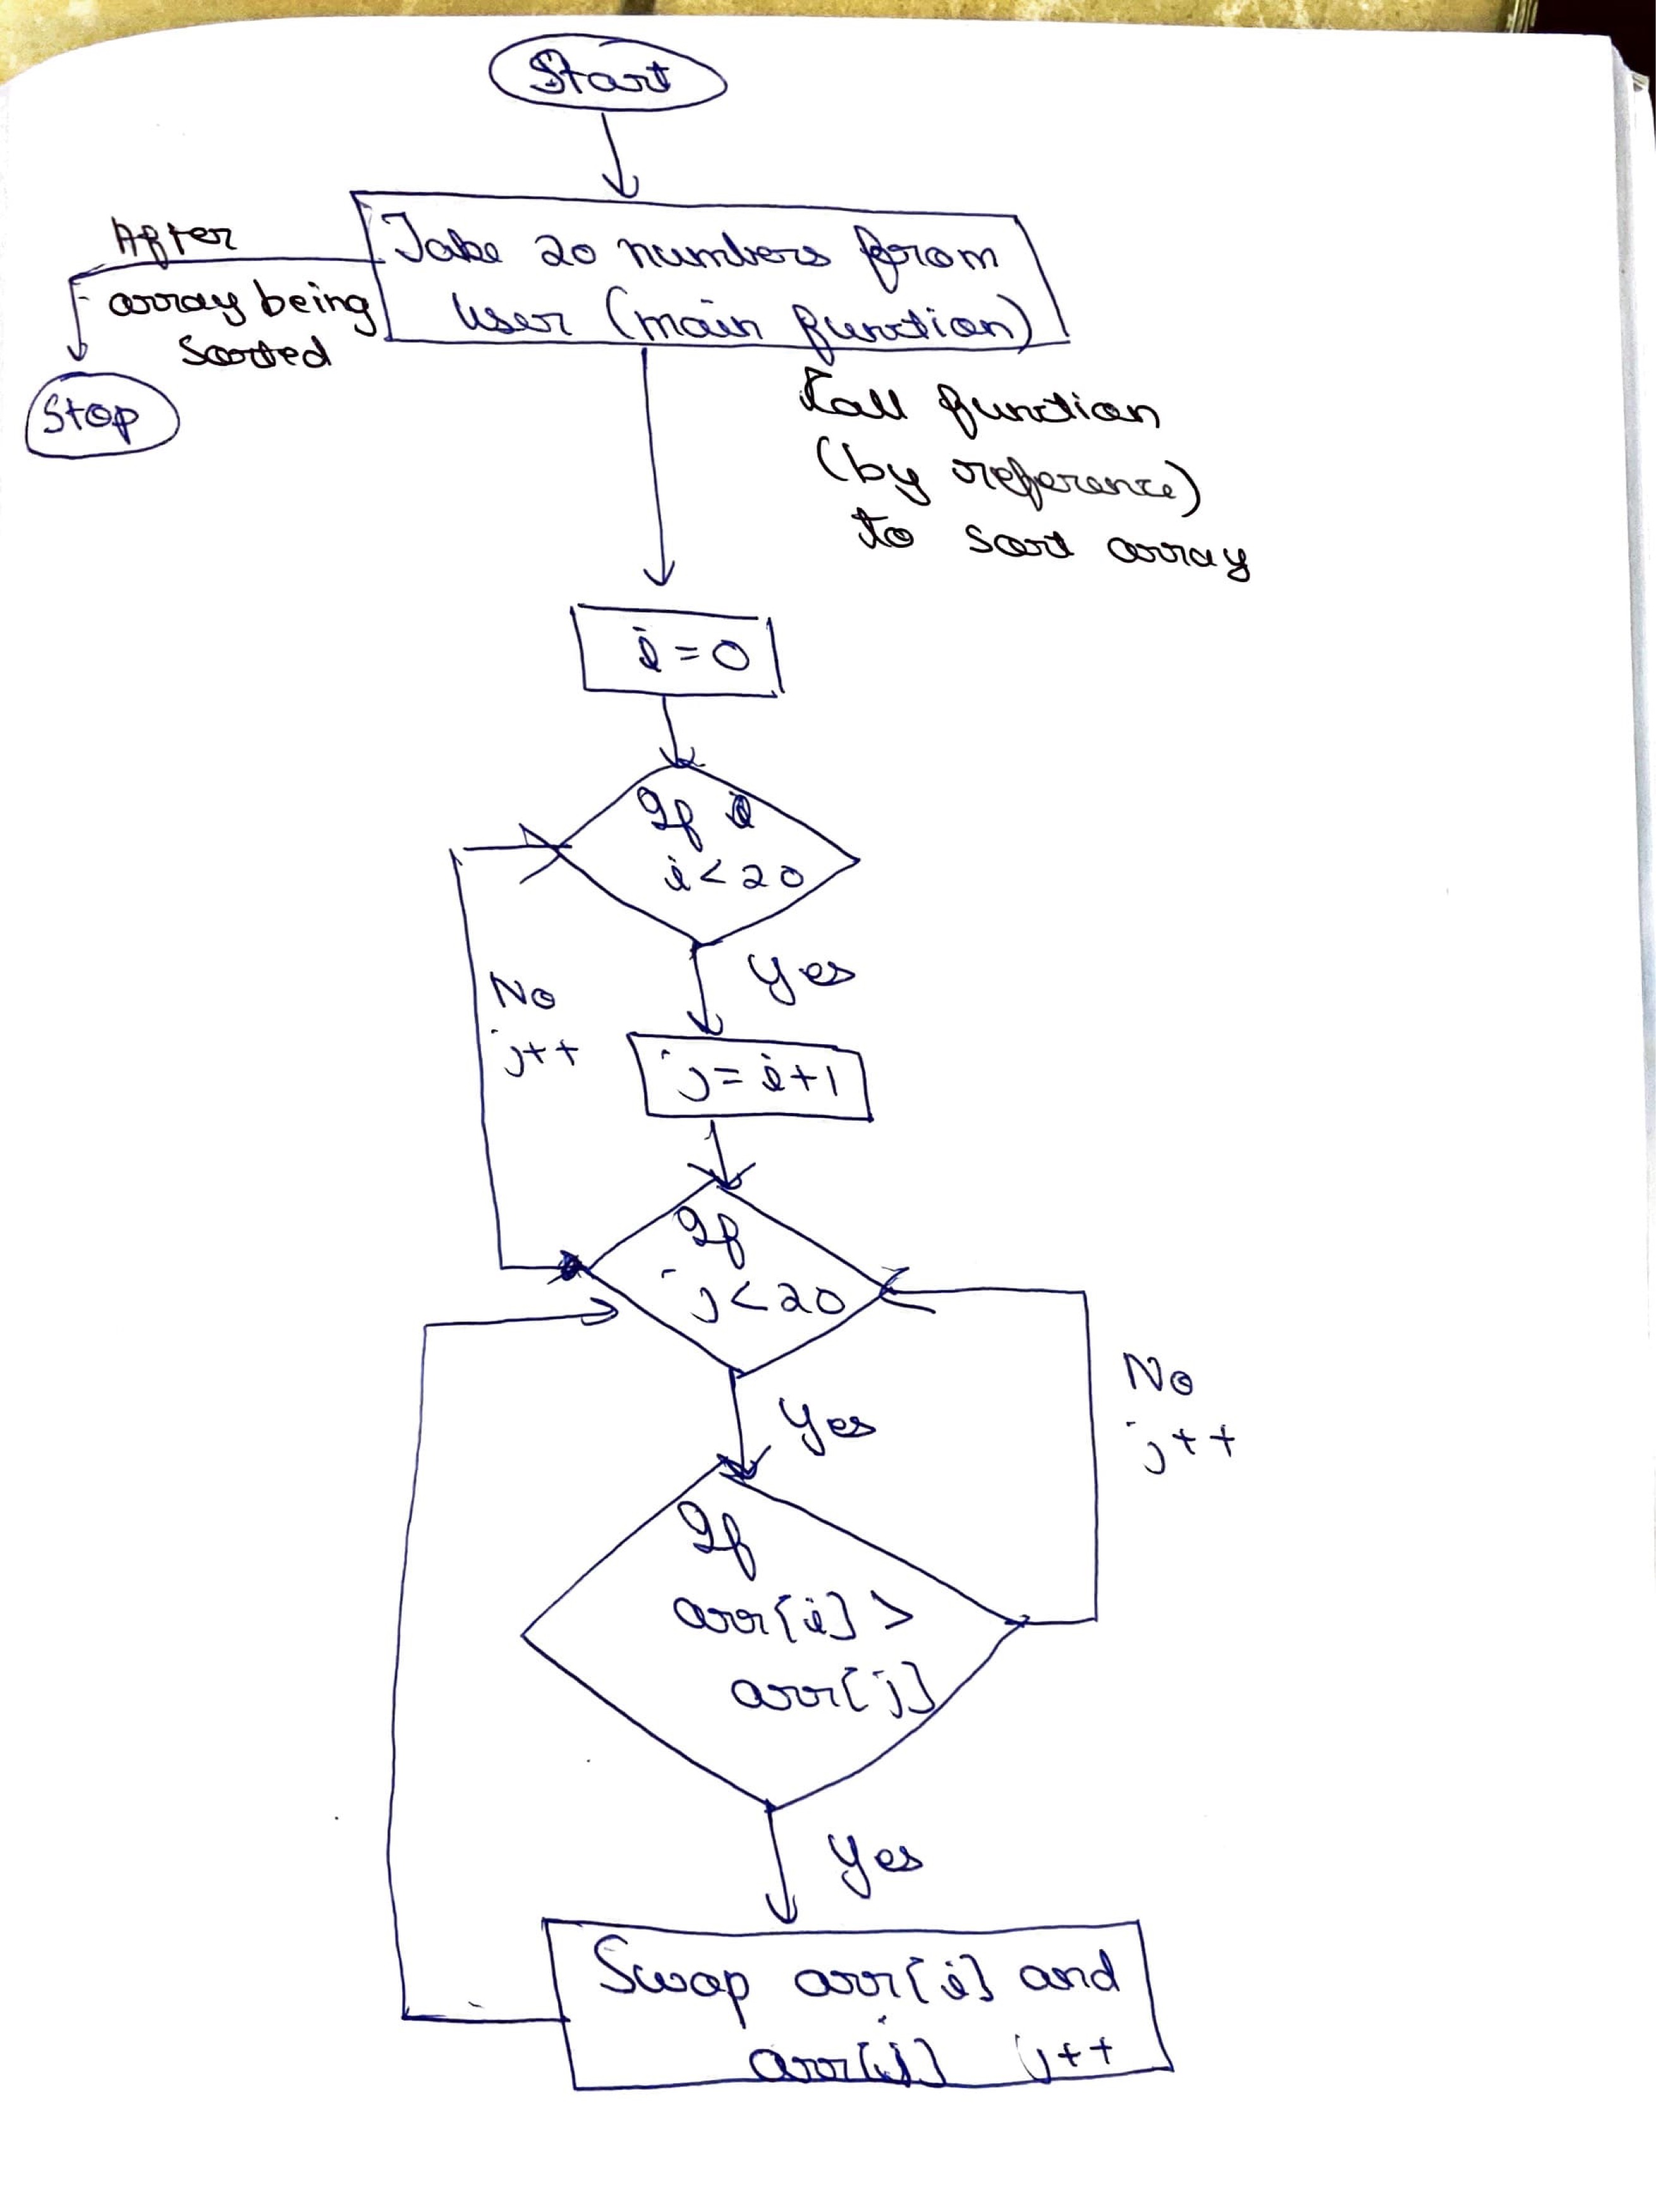 Start
Take 20 numbers from
user (main function)
After
array being
sorted
Stop
Call function
(by reference)
to sort array
i=0
If
i<20
Yes
No
j++
j=i+1
If
j<20
Yes
No
j++
If
arr[i]>
arr[j]
Yes
Swap arr[i] and
arr[j] j++